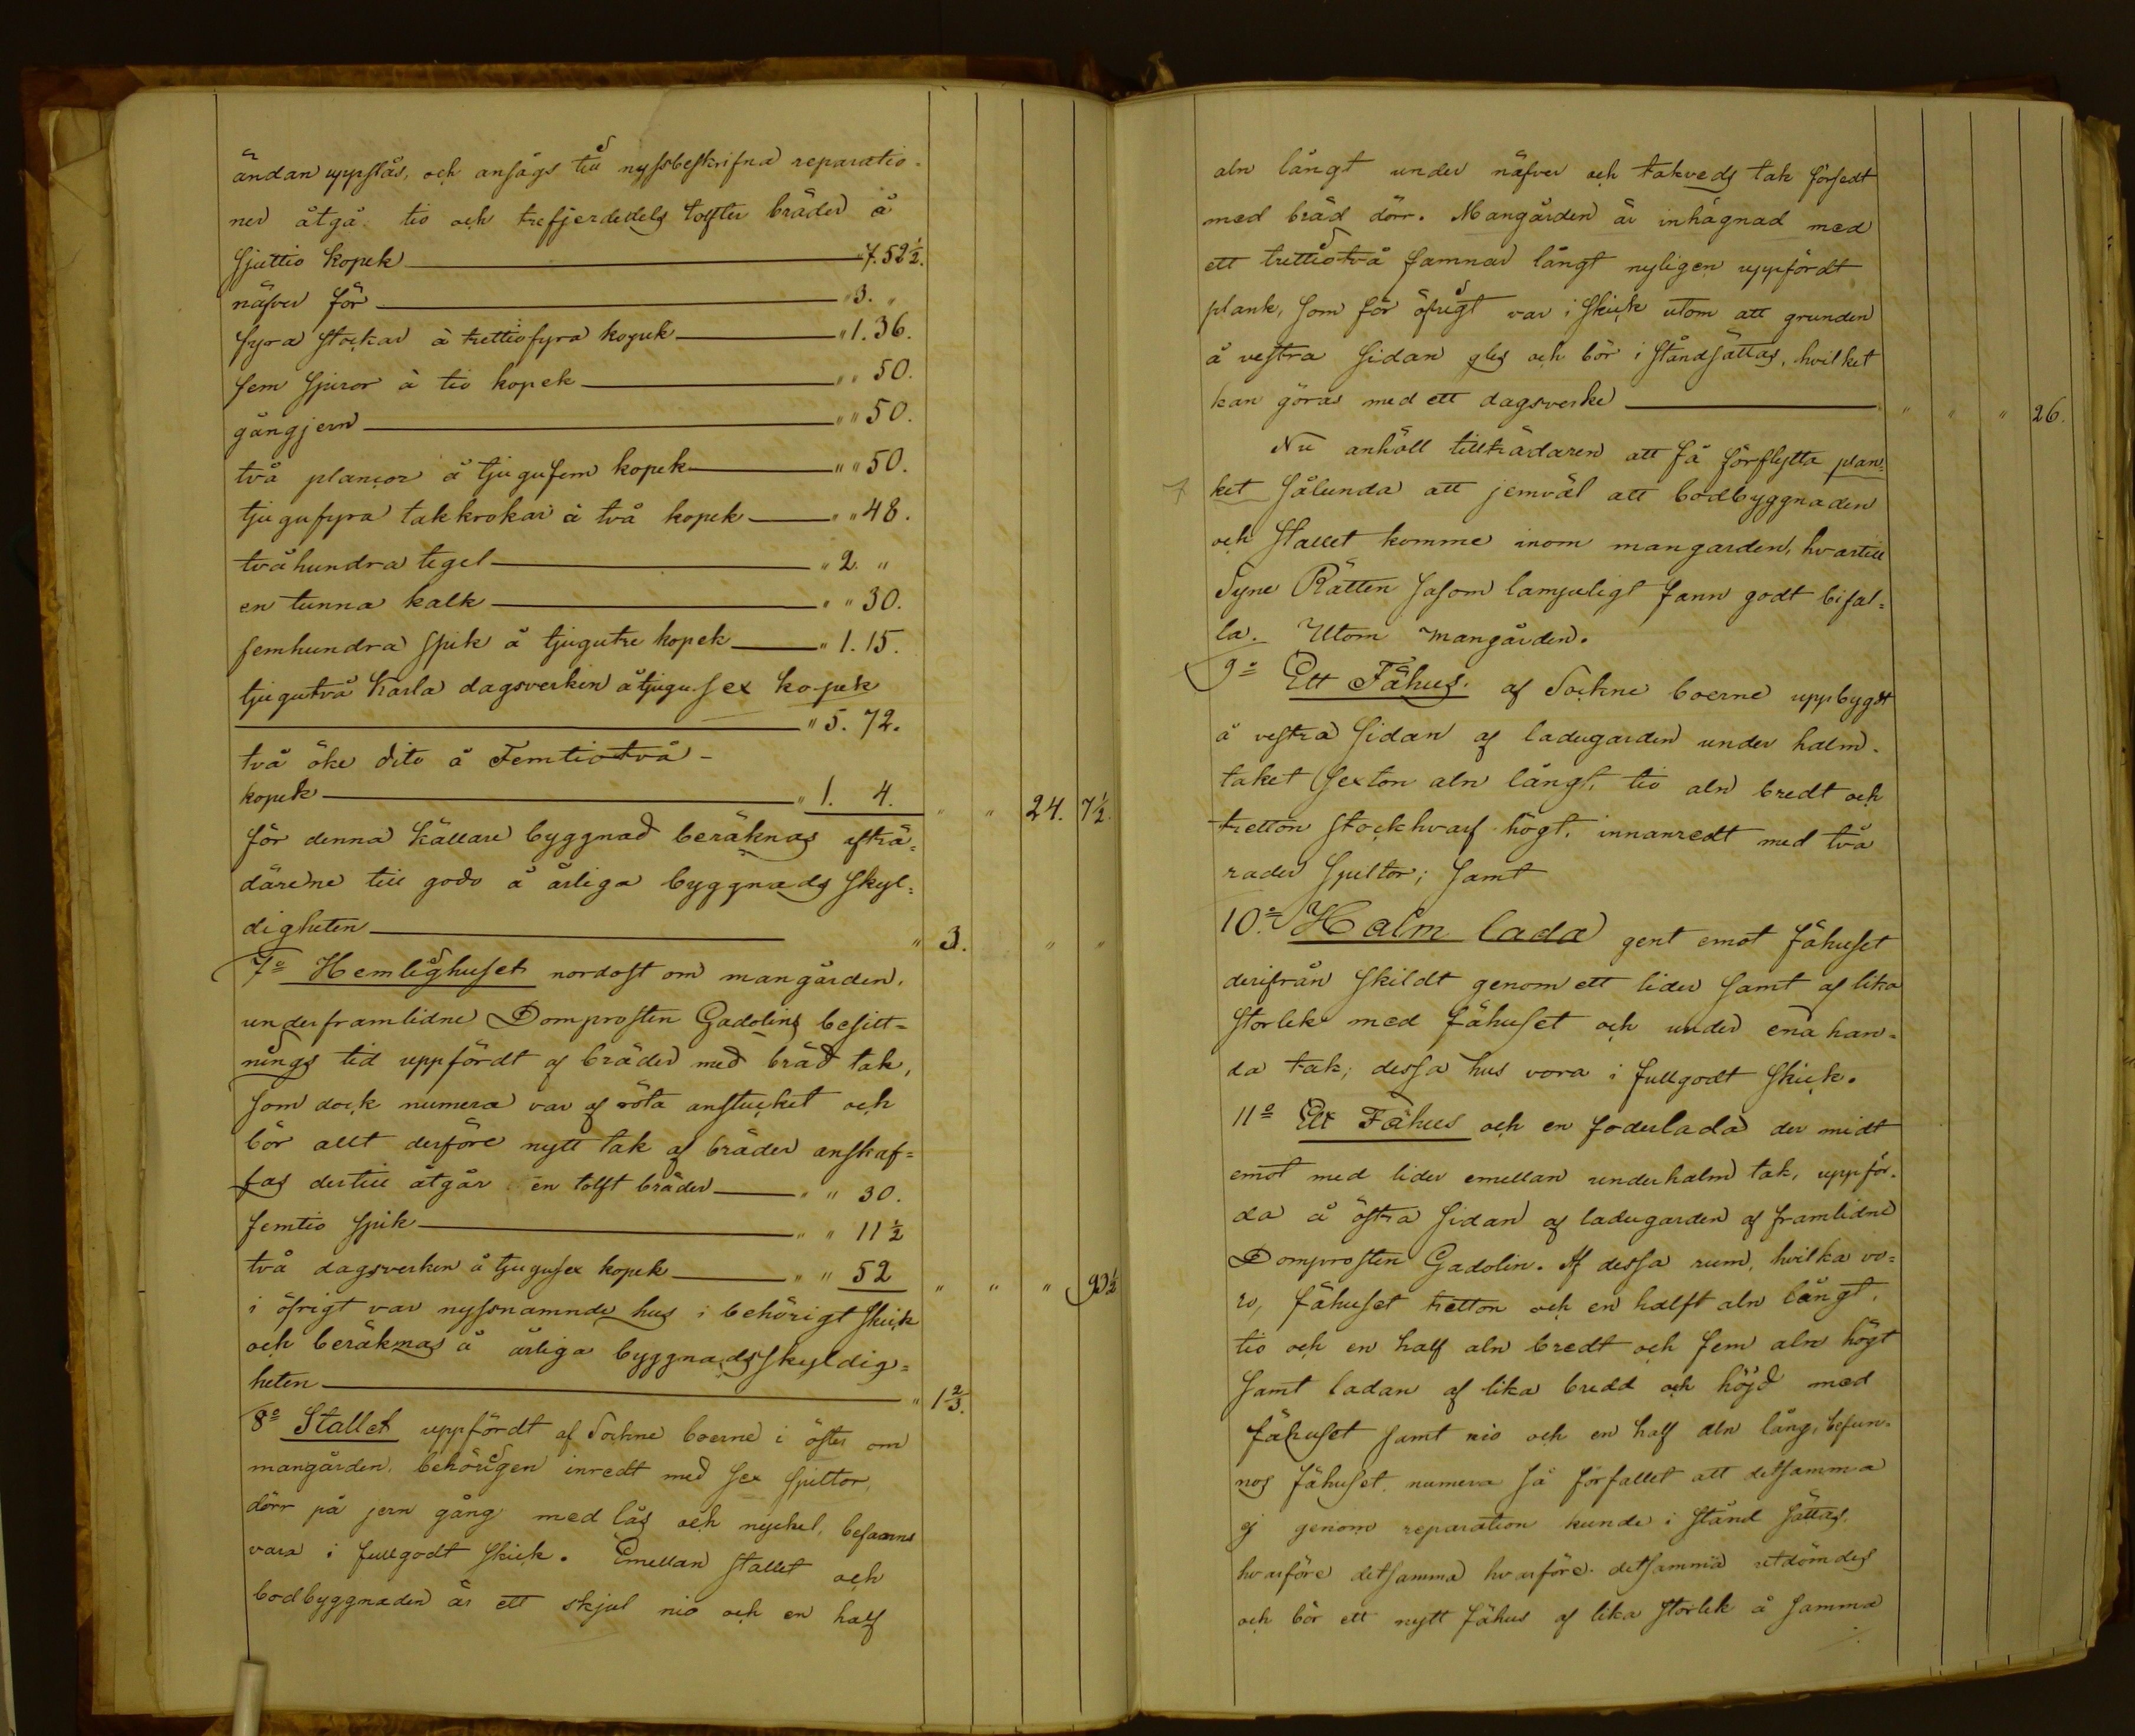 ändan uppslås, och ansågs till nyssbeskrifna reparatio-
ner åtgå. tio och trefjerdedels tolfter bräder å
sjuttio kopek 7.52½.
näfver för " 3. "
fyra stockar à trettiofyra kopek " 1.36.
fem spiror à tio kopek " " 50.
gångjern " " 50.
två plancor à tjugufem kopek " " 50.
tjugufyra takkrokar à två kopek " " 48.
tvåhundra tegel " 2. "
en tunna kalk " " 30.
femhundra spik à tjugutre kopek " 1.15.
tjugutvå Karla dagsverken à tjugusex kopek
" 5. 72.
två öke dito à Femtiotvå -
kopek " 1. 4. " " 24. 7½.
för denna källare byggnad beräknas afträ=
därene till godo å årliga byggnads skyl=
digheten " 3. " "
7º Hemlighuset nordost om mangården,
under framlidne Domprosten Gadolins besitt=
nings tid uppfördt af bräder med bräd tak,
som dock numera var af röta anstucket och
bör allt derföre nytt tak af bräder anskaf=
fas dertill åtgår en tolft bräder " " 30.
femtio spik " " 11½
två dagsverken à tjugusex kopek " " 52 " " " 93½
i öfrigt var nyssnämnde hus i behörigt skick
och beräknas å årliga byggnadsskyldig=
heten " 1⅔.
8º Stallet uppfördt af Sockne boerne i öster om
mangården, behörigen inredt med sex spiltor,
dörr på jern gång med lås och nyckel, befanns
vara i fullgodt skick. Emellan stallet och
bodbyggnaden är ett skjul nio och en half
aln långt under näfver och takveds tak försedt
med bräd dörr. Mangården är inhägnad med
ett trettiotvå famnar långt nyligen uppfördt
plank, som för öfrigt var i skick utom att grunden
å vestra sidan gles och bör i ståndsättas, hvilket
kan göras med ett dagsverke " " " 26.
Nu anhöll tillträdaren att få förflytta plan=
ket sålunda att jemväl att bodbyggnaden
och stallet komme inom mangården, hvartill
Syne Rätten såsom lämpligt fann godt bifal=
la. Utom mangården.
9º Ett Fähus. af Sockne boerne uppbygdt
å vestra sidan af ladugården under halm-
taket sexton aln långt, tio aln bredt och
tretton stockhvarf högt, innanredt med två
rader spiltor; samt
10º Halm lada gent emot fähuset
derifrån skildt genom ett lider samt af lika
storlek med fähuset och under ena han-
da tak; dessa hus vora i fullgodt skick.
11º Ett Fähus och en foderlada der midt
emot med lider emellan under halm tak, uppför-
da å östra sidan af ladugården af framlidne
Domprosten Gadolin. Af dessa rum, hvilka vo=
ro, fähuset tretton och en halft aln långt,
tio och en half aln bredt och fem aln högt
samt ladan af lika bredd och höjd med
fähuset samt nio och en half aln lång, befun-
nos fähuset, numera så förfallet att detsamma
ej genom reparation kunde i stånd sättas,
hvarföre detsamma hvarföre detsamma utdömdes
och bör ett nytt fähus af lika storlek å samma